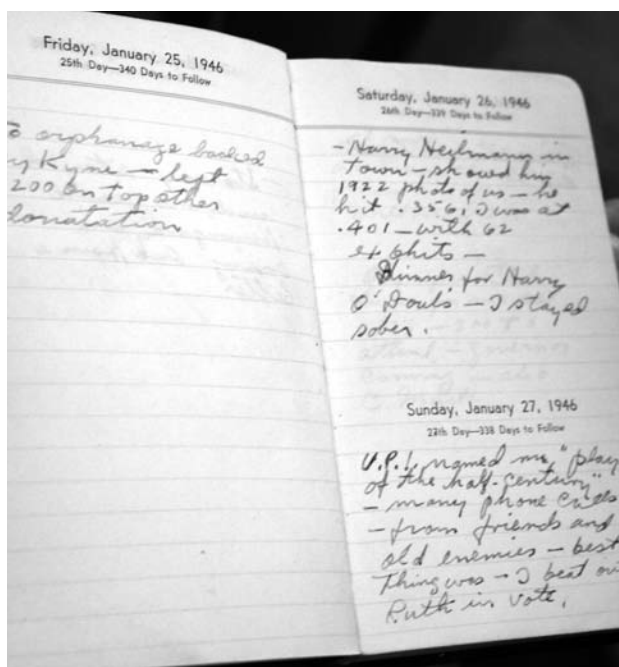 Friday, January 25, 1946
25th Day—340 Days to Follow
orphanage backed
y Kyne — left
200 on top other
donatation
Saturday, January 26, 1946
26th Day—339 Days to Follow
- Harry Heilmann in
town - showed him
1922 photo of us - he
hit .356, I was at
.401 - with 62
ex hits -
Dinner for Harry
O'Doul's - I stayed
sober.
Sunday, January 27, 1946
27th Day—338 Days to Follow
U.P.I. named me "play
of the half-century"
- many phone calls
- from friends and
old enemies - best
thing was - I beat ou
Ruth in vote.